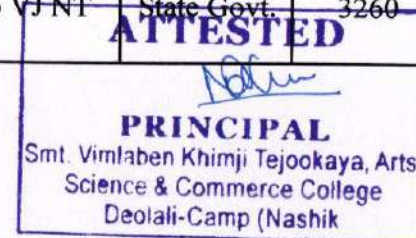 VJNT State Govt. 3260
ATTESTED
PRINCIPAL
Smt. Vimlaben Khimji Tejookaya, Arts
Science & Commerce College
Deolali-Camp (Nashik